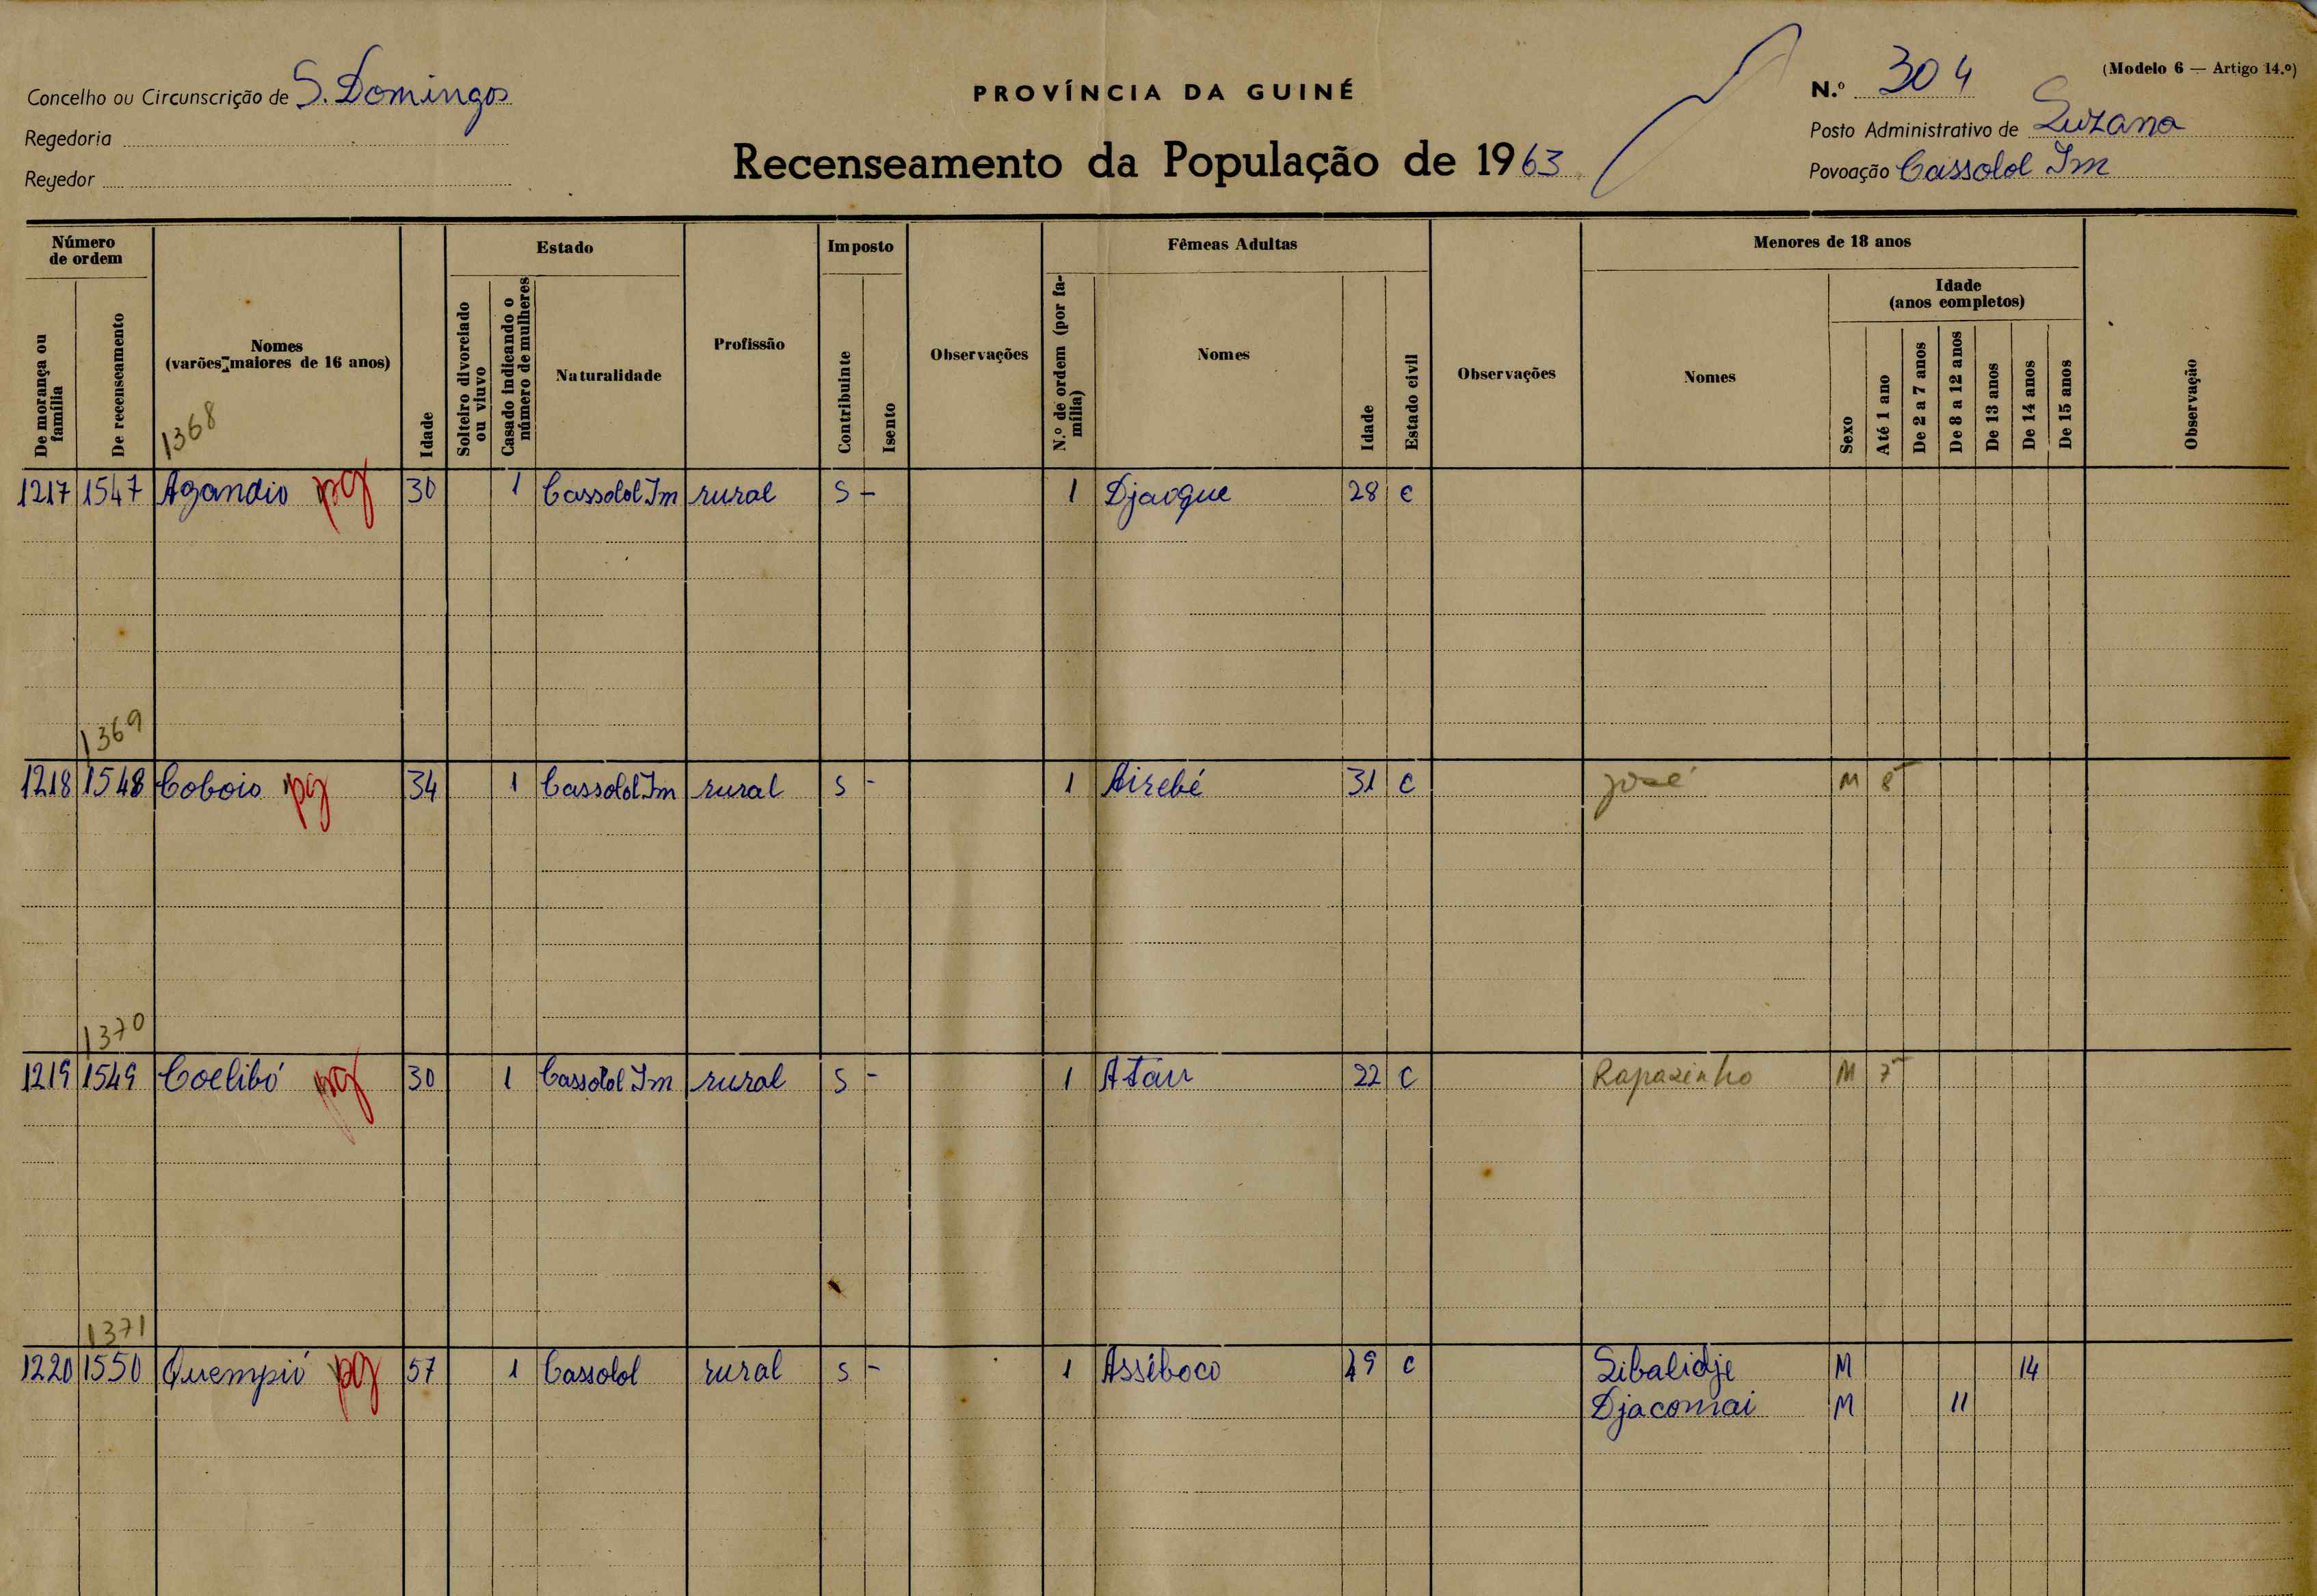 Concelho ou Circunscrição de S. Domingos
Regedoria
Regedor
PROVÍNCIA DA GUINÉ
Recenseamento da População de 1963
(Modelo 6 — Artigo 14.º)
N.º 304
Posto Administrativo de Suzana
Povoação Cassolol Im
Número de ordem
De morança ou família
De recenseamento
Nomes
(varões maiores de 16 anos)
1368
Idade
Estado
Solteiro divorciado ou viuvo
Casado indicando o número de mulheres
Naturalidade
Profissão
Imposto
Contribuinte
Isento
Observações
Fêmeas Adultas
N.º de ordem (por família)
Nomes
Idade
Estado civil
Observações
Menores de 18 anos
Nomes
Sexo
Idade
(anos completos)
Até 1 ano
De 2 a 7 anos
De 8 a 12 anos
De 13 anos
De 14 anos
De 15 anos
Observação
1217 1547 Agandio pg 30 1 Cassolol Im rural S - 1 Djaogue 28 C
1369
1218 1548 Coboio pg 34 1 Cassolol Im rural S - 1 Airebé 31 C José M
1370
1219 1549 Coelibó pg 30 1 Cassolol Im rural S - 1 Atau 22 C Rapazinho M 7
1371
1220 1550 Quempió pg 57 1 Cassolol rural S - 1 Asséboco 49 C Sibalidje M 14
Djacomai M 11